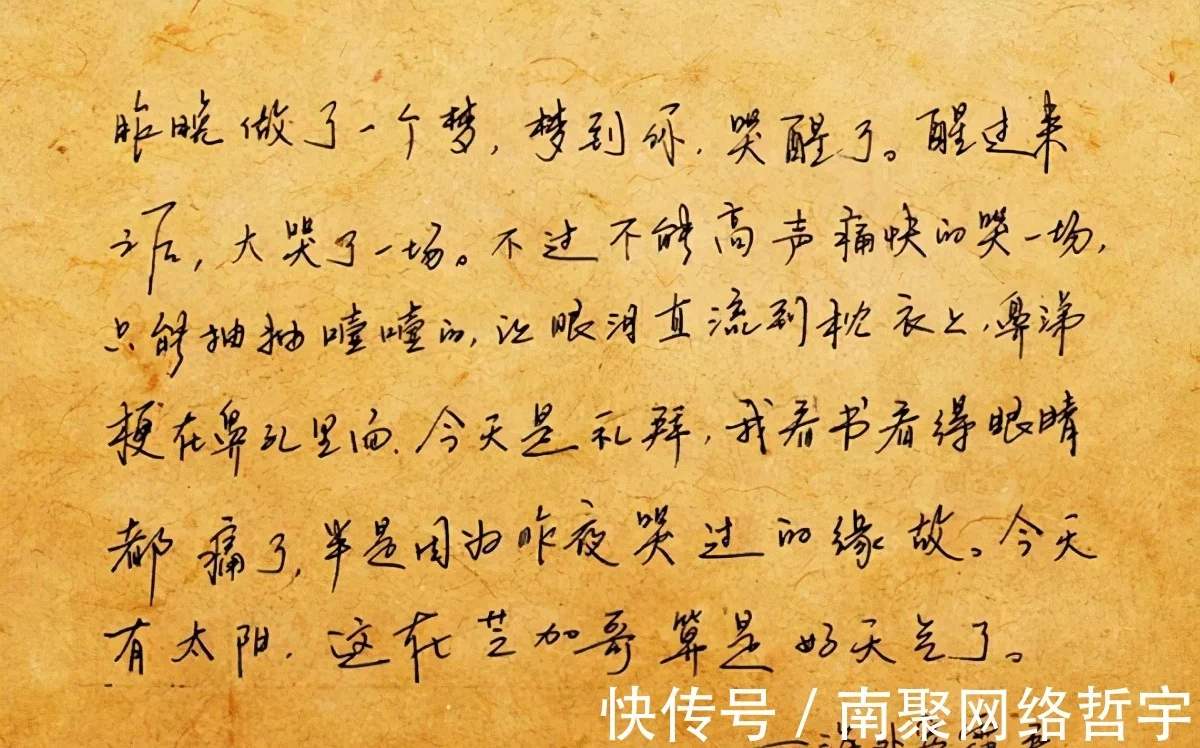 昨晚做了一个梦，梦到你，哭醒了。醒过来
之后，大哭了一场。不过不能高声痛快的哭一场，
只能抽抽噎噎的，让眼泪直流到枕衣上，鼻涕
梗在鼻孔里面。今天是礼拜，我看书看得眼睛
都痛了，半是因为昨夜哭过的缘故。今天
有太阳，这在芝加哥算是好天气了。
快传号/南聚网络哲宇